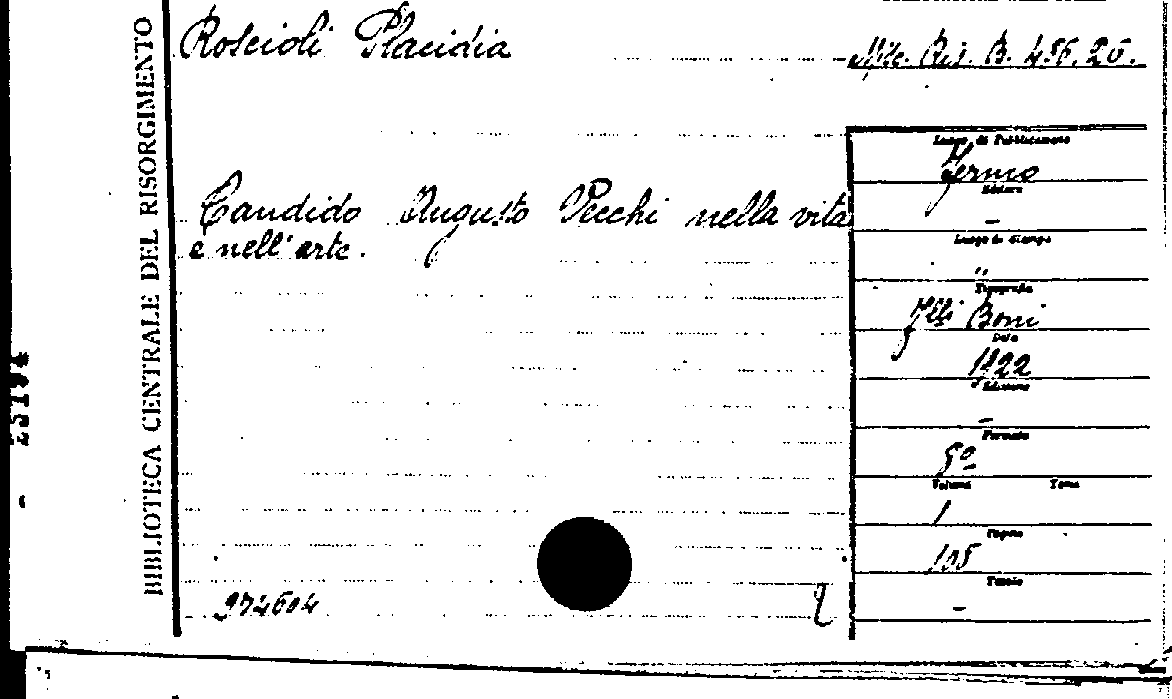 BIBLIOTECA CENTRALE DEL RISORGIMENTO
Roscioli Placidia
Misc. Ris. B. 486. 20.
Candido Augusto Vecchi nella vita
e nell'arte.
Luogo di Pubblicazione
Fermo
Editore
—
Luogo di Stampa
"
Tipografia
Flli Boni
Data
1922
Edizione
—
Formato
8º
Volume Tomo
1
Pagine
105
Tavole
—
974604